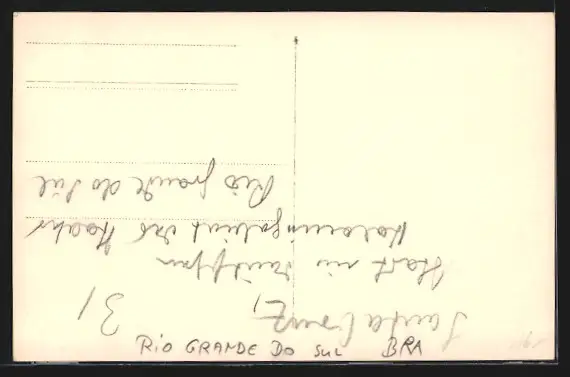 Santa Cruz,
31
Stadt im deutschen
Koloningebiet des Staates
Rio grande do Sul
RIO GRANDE DO SUL BRA